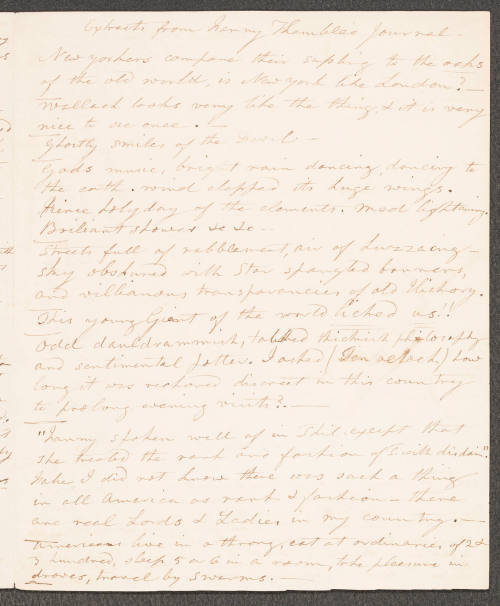 Extracts from Fenny Thembles Journal -
New yorkers compare their sapling to the oaks
of the old world, is New york like London? -
Wallack looks very like the thing, & it is very
nice to see once. -
Ghostly smiles of the Devil -
Gods music, bright rain dancing, dancing to
the earth. wind clapped its huge wings.
fierce holyday of the elements. mad lightning.
Brilliant showers &c &c -
Streets full of rabblement, air of huzzaing -
sky obscured with Star spangled banners,
and villianous transparencies of old Hickory.
This young Giant of the world licked us!!
Odd dauldrummish, talked thickish philosophy
and sentimental I asked how
long it was reckoned discreet in this country
to prolong evening visits? -
"Fanny spoken well of in Phil. except that
she treated the rank and fashion of I with disdain".
Wake I did not know there was such a thing
in all America as rank & fashion - there
are real Lords & Ladies in my country. -
Americans live in a throng, eat at ordinaries of 2 &
3 hundred, sleep 5 or 6 in a room, take pleasure in
droves, travel by swarms. -